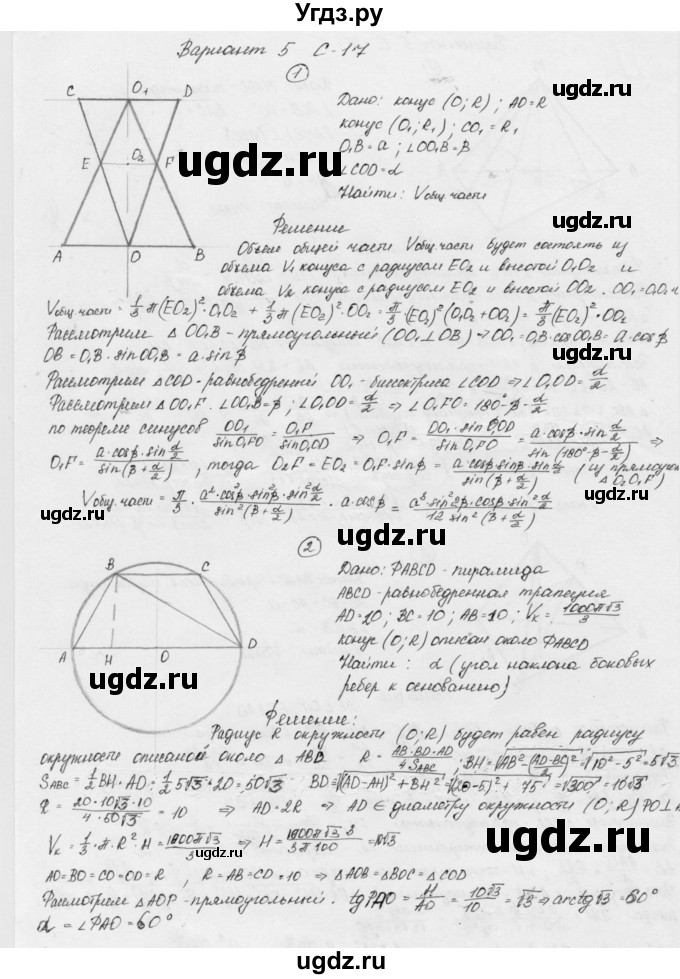 Угдз.ру
Вариант 5 С-17
1
C O₁ D
E O₂ F
A O B
Дано: конус (O; R) ; AO=R
конус (O₁; R₁) ; CO₁ = R₁
O₁B = a ; ∠OO₁B = β
∠COD = α
Найти: Vобщ.части
ugdz.ru
ugdz.ru
Решение
Объём общей части Vобщ.части будет состоять из
объёма V₁ конуса с радиусом EO₂ и высотой O₁O₂ и
объёма V₂ конуса с радиусом EO₂ и высотой OO₂.
Vобщ части = 1/3 π(EO₂)²·O₁O₂ + 1/3 π(EO₂)²·OO₂ = π/3 (EO₂)²(O₁O₂+OO₂) =
Рассмотрим △ OO₁B - прямоугольный (OO₁⊥OB) ⇒ OO₁ = O₁B·cosOO₁B = a·cosβ
OB = O₁B·sinOO₁B = a·sinβ
Рассмотрим △COD - равнобедренный OO₁ - биссектриса ∠COD ⇒ ∠O₁OD = α/2
Рассмотрим △OO₁F. ∠OO₁B = β ; ∠O₁OD = α/2 ⇒ ∠O₁FO = 180° - β - α/2
по теореме синусов OO₁/sinO₁FO = O₁F/sinO₁OD ⇒ O₁F = OO₁·sinO₁OD/sinO₁FO = a·cosβ·sin α/2 / sin(180°-β-α/2) ⇒
O₁F = a·cosβ·sin α/2 / sin(β+α/2) , тогда O₂F = EO₂ = O₁F·sinβ = a·cosβ·sinβ·sin α/2 / sin(β+α/2)
Vобщ.части = π/3 · a²·cos²β·sin²β·sin² α/2 / sin²(β+α/2) · a·cosβ =
ugdz.ru
ugdz.ru
2
B C
A H O D
Дано: PABCD - пирамида
ABCD - равнобедренная трапеция
AD=20 ; BC=10 ; AB=10 ; Vк = 1000π√3/3
конус (O; R) описан около PABCD
Найти: α (угол наклона боковых
ребер к основанию)
ugdz.ru
ugdz.ru
Решение:
Радиус R окружности (O; R) будет равен радиусу
окружности описаной около △ ABD R = AB·BD·AD/4SABC ; BH = √AB²-(AD-BC/2)² = √10²-5² = 5√3
SABC = 1/2 BH·AD = 1/2 5√3·20 = 50√3 BD = √(AD-AH)²+BH² = √(20-5)²+75 = √300 = 10√3
R = 20·10√3·10/4·50√3 = 10 ⇒ AD = 2R ⇒ AD ∈ диаметру окружности (O; R) PO⊥A
Vк = 1/3·π·R²·H = 1000π√3/3 ⇒ H = 1000π√3·3/3π100 = 10√3
AO=BO=CO=OD=R , R=AB=CD=10 ⇒ △AOB = △BOC = △COD
Рассмотрим △AOP - прямоугольный. tgPAO = H/AO = 10√3/10 = √3 ⇒ arctg√3 = 60°
α = ∠PAO = 60°
ugdz.ru
ugdz.ru
ugdz.ru
ugdz.ru